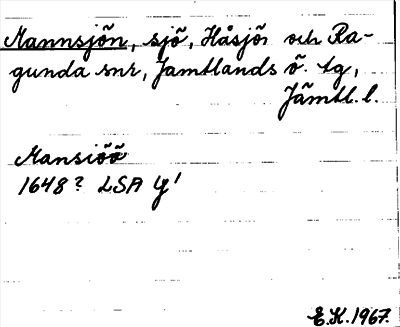 Mannsjön, sjö, Håsjös och Ra-
gunda snr, Jämtlands ö. tg,
Jämtl. l.
Mansiöö
1648? LSA Y'
E.K. 1967.